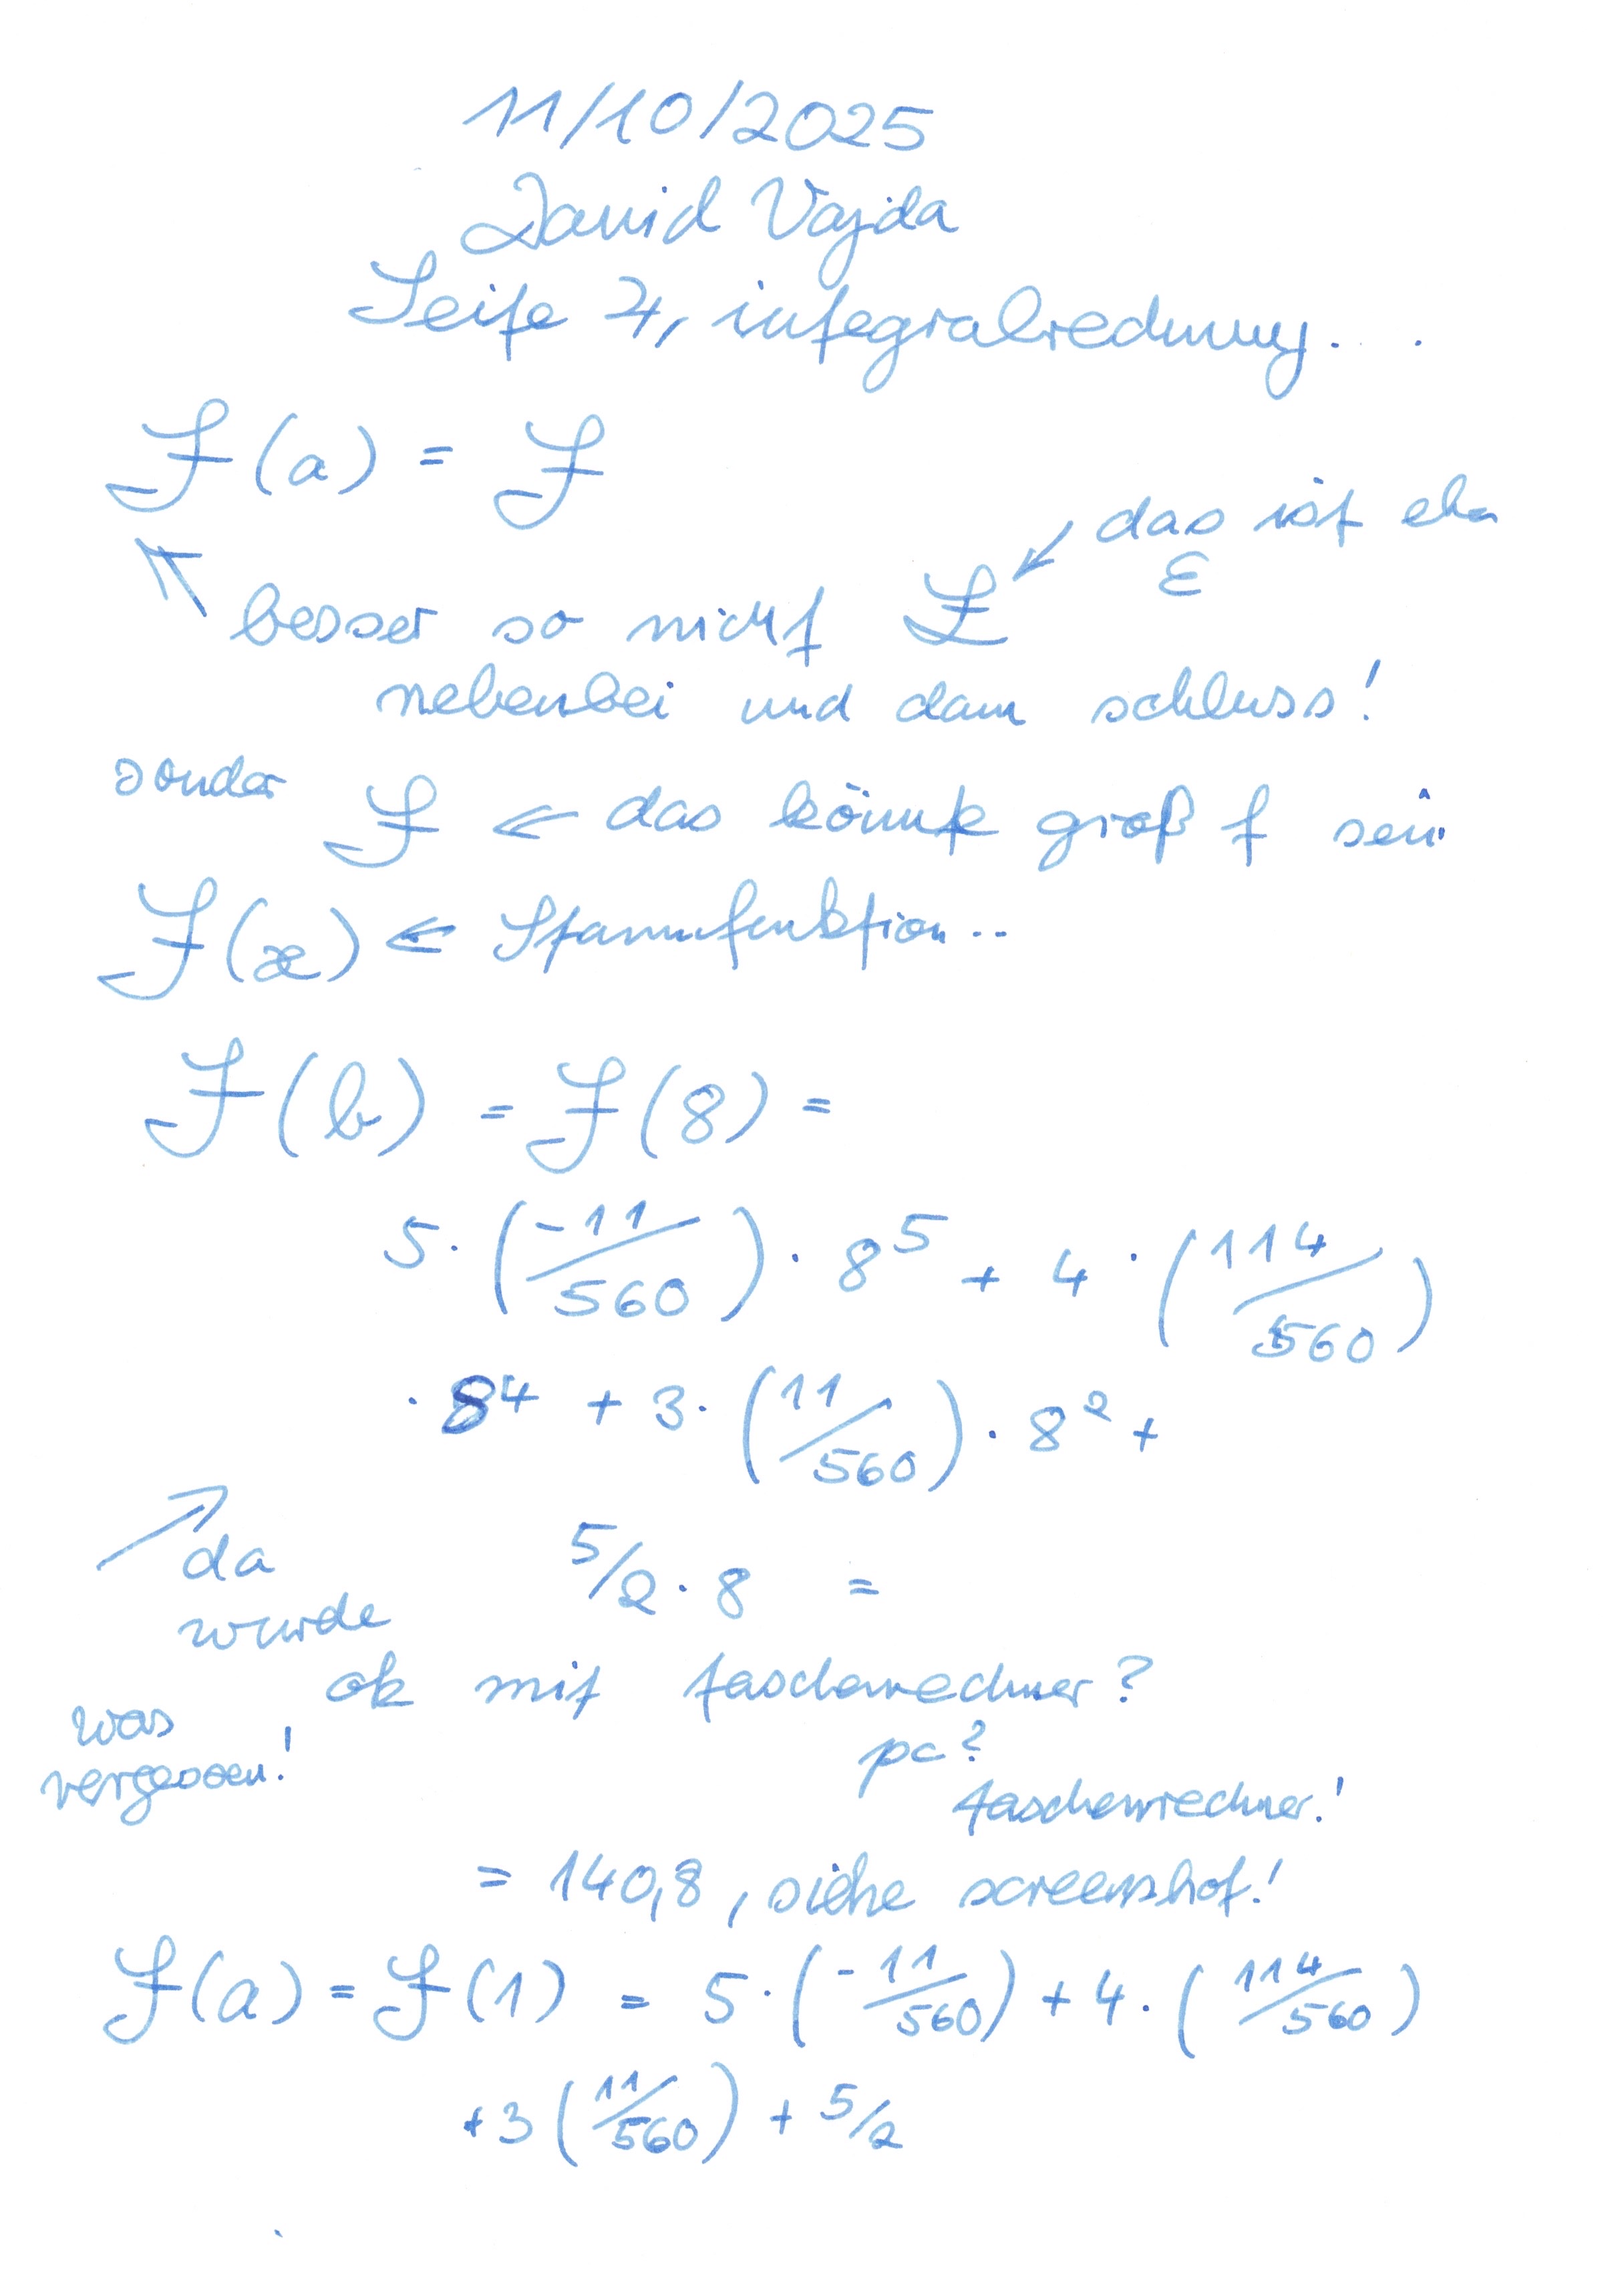 11/10/2025
David Vajda
Seite 4, integralrechnung. . .
F(a) = F
das ist eher
ε
besser so nicht
nebenbei und dann schluss!
sonder F ← das könnte groß f sein
F(x) ← Stammfunktion..
F(b) = F(8) =
5·(-11/560)·8^5 + 4·(114/560)
·8^4 + 3·(11/560)·8^2 +
5/2·8 =
da
wurde
was
vergessen!
ok mit taschenrechner?
pc?
taschenrechner!
= 140,8, siehe screenshot!
F(a) = F(1) = 5·(-11/560) + 4·(114/560)
+3(11/560) + 5/2